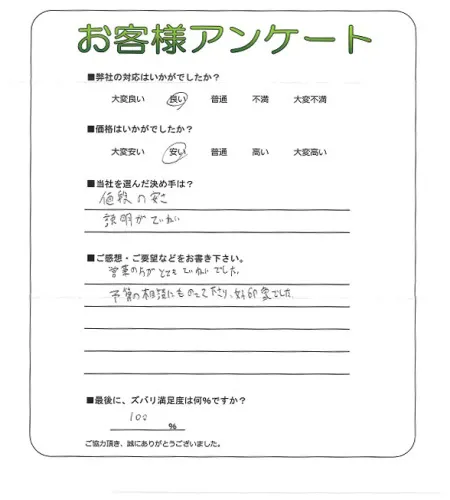 お客様アンケート
■弊社の対応はいかがでしたか？
大変良い 良い 普通 不満 大変不満
■価格はいかがでしたか？
大変安い 安い 普通 高い 大変高い
■当社を選んだ決め手は？
値段の安さ
説明がていねい
■ご感想・ご要望などをお書き下さい。
営業の方がとてもていねいでした。
予算の相談にものって下さり、好印象でした
■最後に、ズバリ満足度は何%ですか？
100
%
ご協力頂き、誠にありがとうございました。